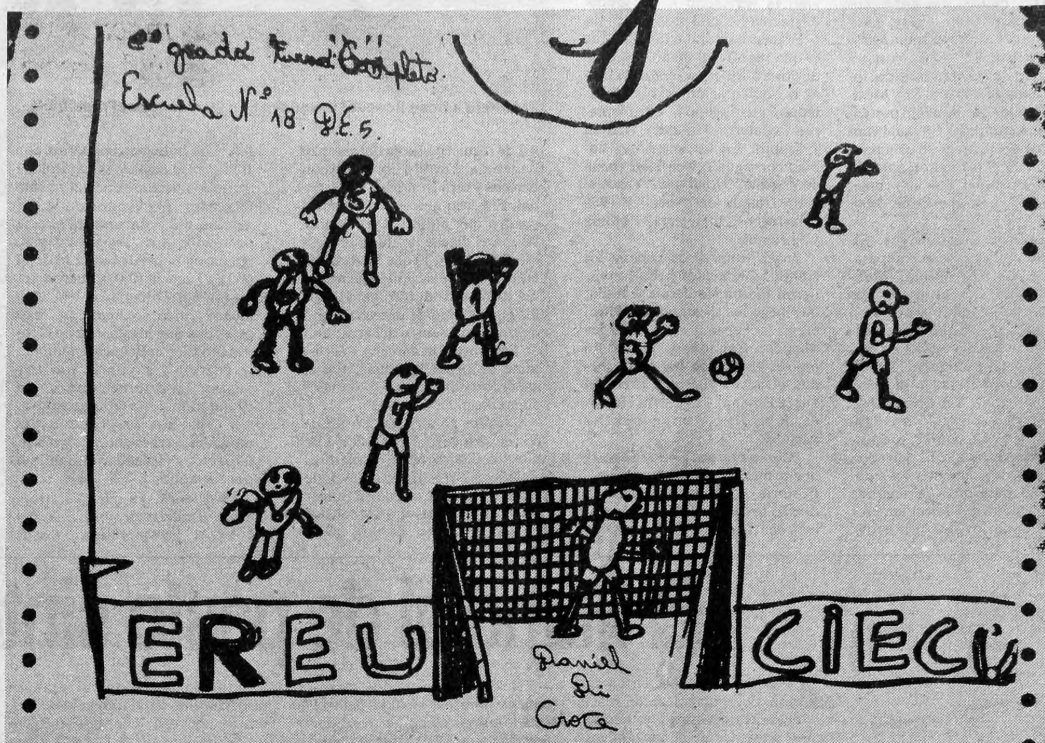 6º grado Turno Completo.
Escuela Nº 18. D.E. 5.
5
1
8
4
EREU
CIECU
Daniel
Di
Croce